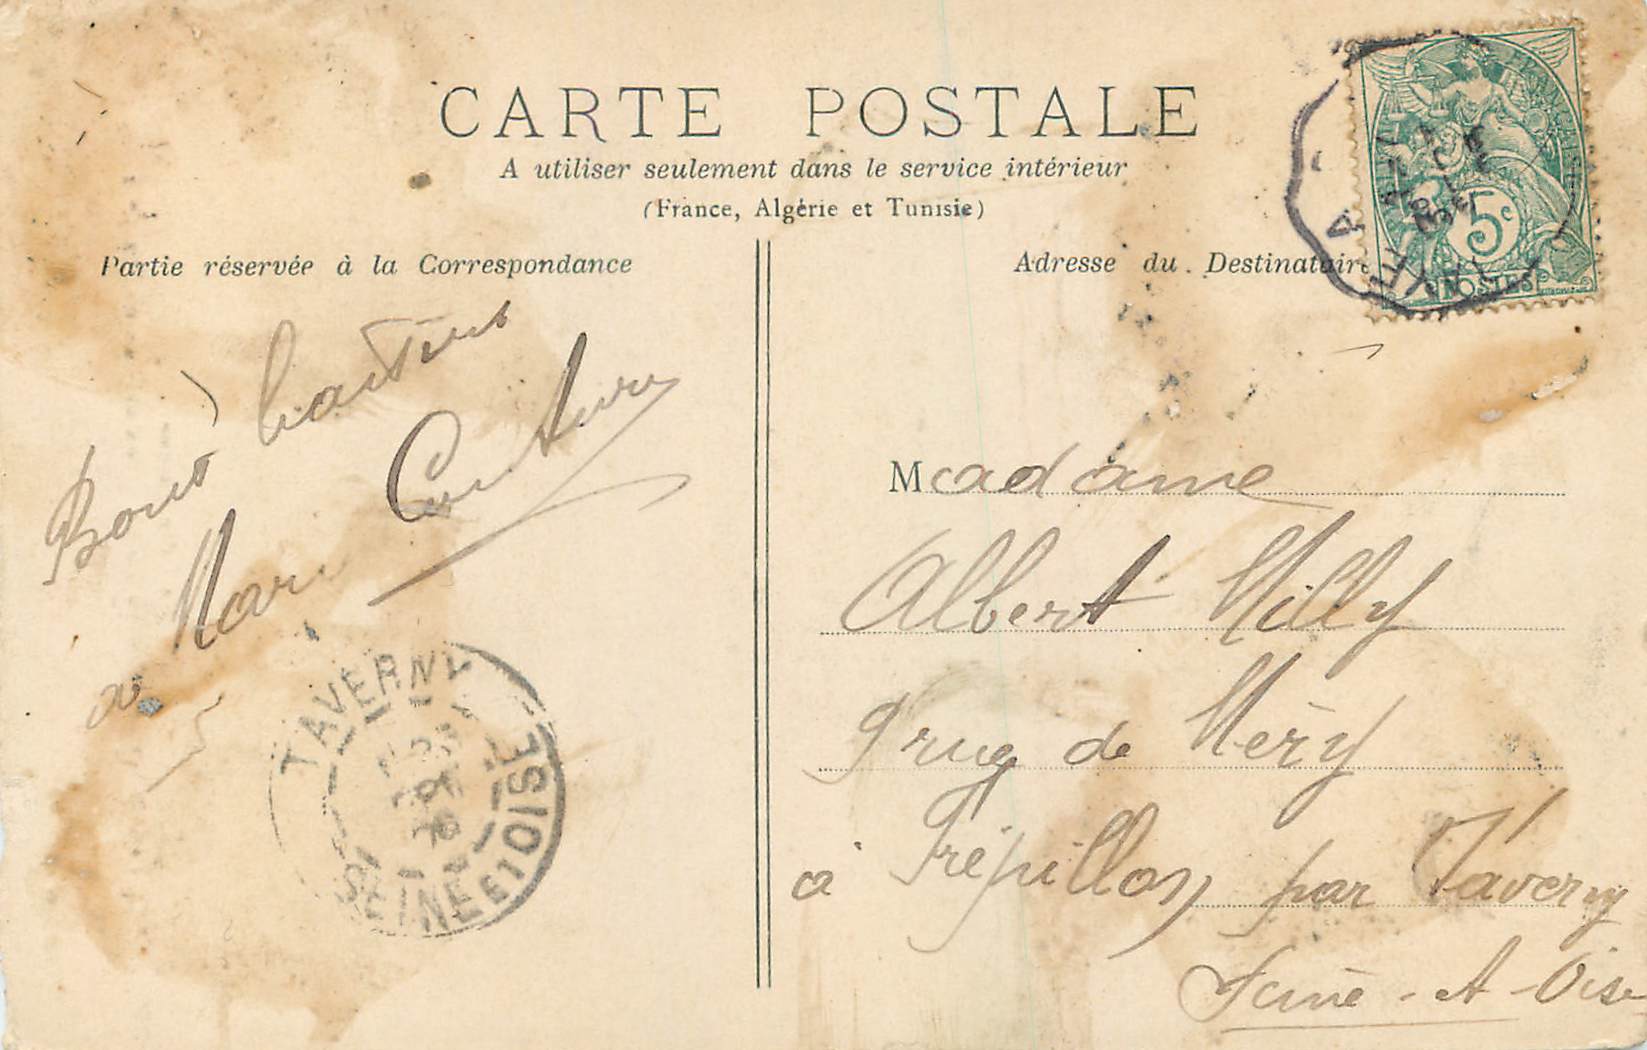 CARTE POSTALE
A utiliser seulement dans le service intérieur
(France, Algérie et Tunisie)
Partie réservée à la Correspondance
Adresse du Destinataire
5c
POSTES
Bons baisers
Couture
TAVERNY
SEINE ET OISE
Madame
Albert Milly
rue de Méry
à Frépillon par Taverny
Seine-et-Oise